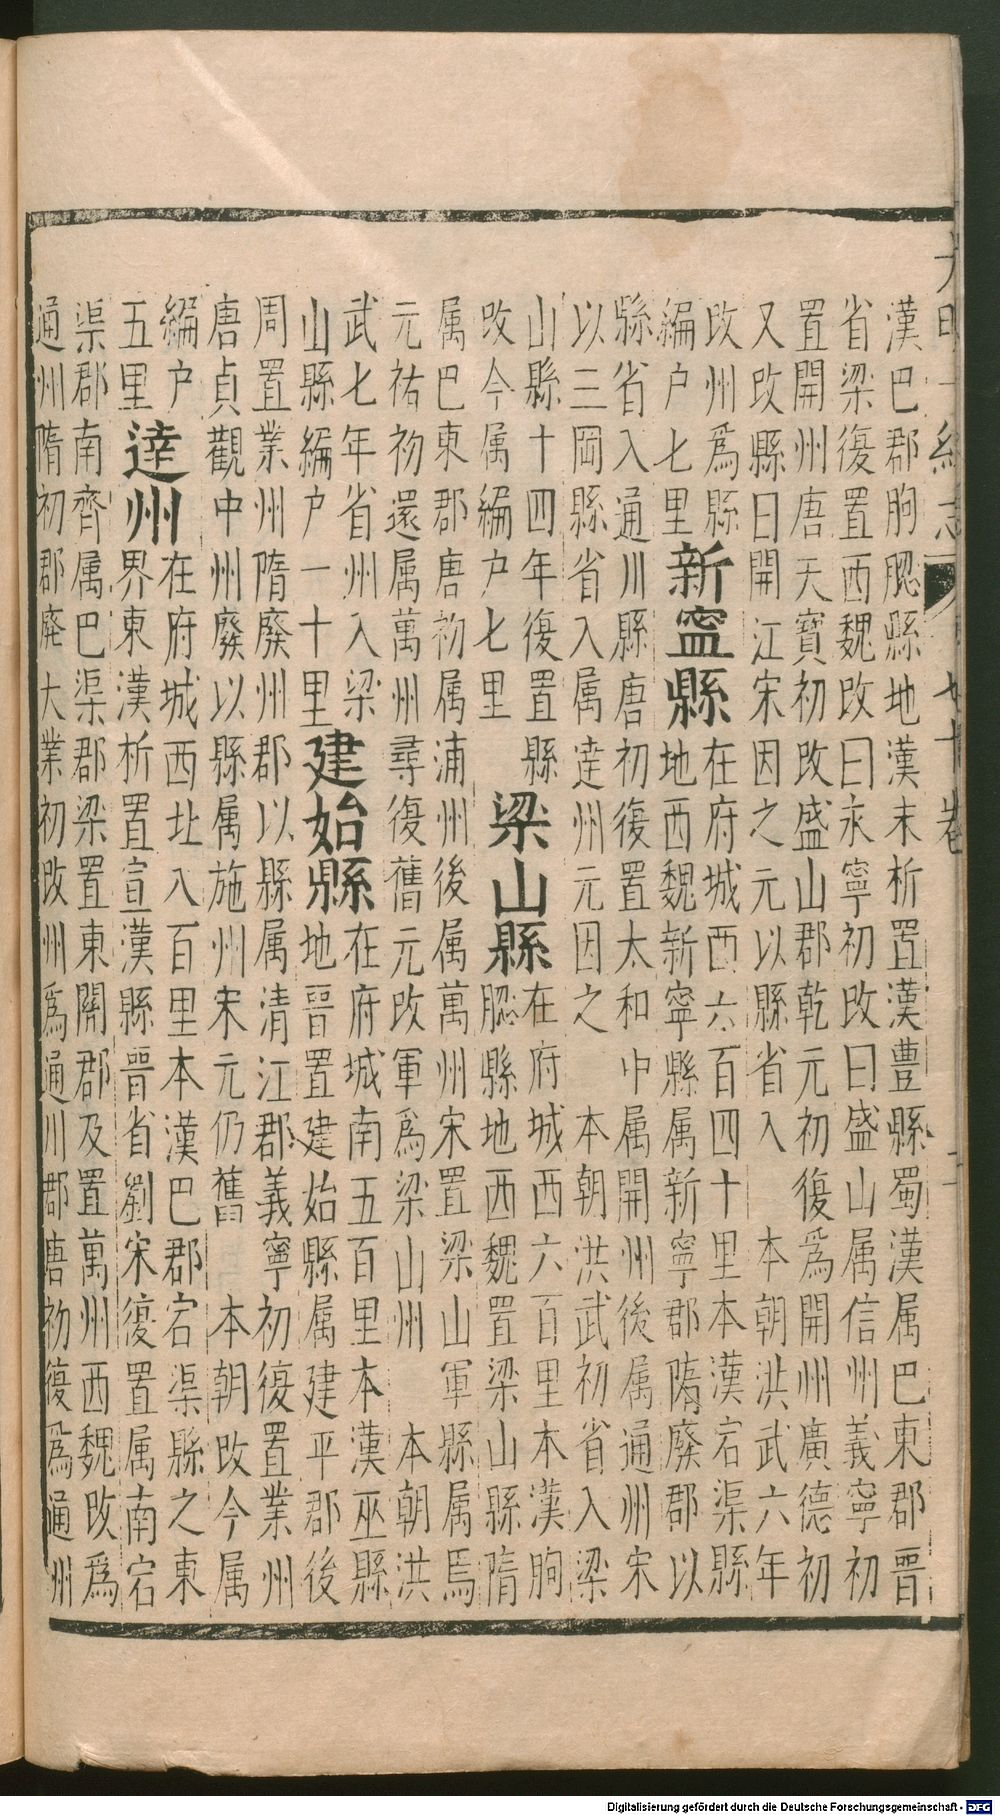 漢巴郡朐䏰縣地漢末析置漢豊縣蜀漢属巴東郡晉
省梁復置西魏改曰永寧初改曰盛山属信州義寧初
置開州唐天寶初改盛山郡乾元初復爲開州廣德初
又改縣曰開江宋因之元以縣省入　本朝洪武六年
改州爲縣
編户七里
新寧縣
在府城西六百四十里本漢宕渠縣
地西魏新寧縣属新寧郡隋廢郡以
縣省入通川縣唐初復置太和中属開州後属通州宋
以三岡縣省入属達州元因之　本朝洪武初省入梁
山縣十四年復置縣
改今属編户七里
梁山縣
在府城西六百里本漢朐
䏰縣地西魏置梁山縣隋
属巴東郡唐初属浦州後属萬州宋置梁山軍縣属焉
元祐初還属萬州尋復舊元改軍爲梁山州　本朝洪
武七年省州入梁
山縣編户一十里
建始縣
在府城南五百里本漢巫縣
地晉置建始縣属建平郡後
周置業州隋廢州郡以縣属清江郡義寧初復置業州
唐貞觀中州廢以縣属施州宋元仍舊　本朝改今属
編户
五里
達州
在府城西北八百里本漢巴郡宕渠縣之東
界東漢析置宣漢縣晉省劉宋復置属南宕
渠郡南齊属巴渠郡梁置東關郡及置萬州西魏改爲
通州隋初郡廢大業初改州爲通川郡唐初復爲通州
Digitalisierung gefördert durch die Deutsche Forschungsgemeinschaft - DFG